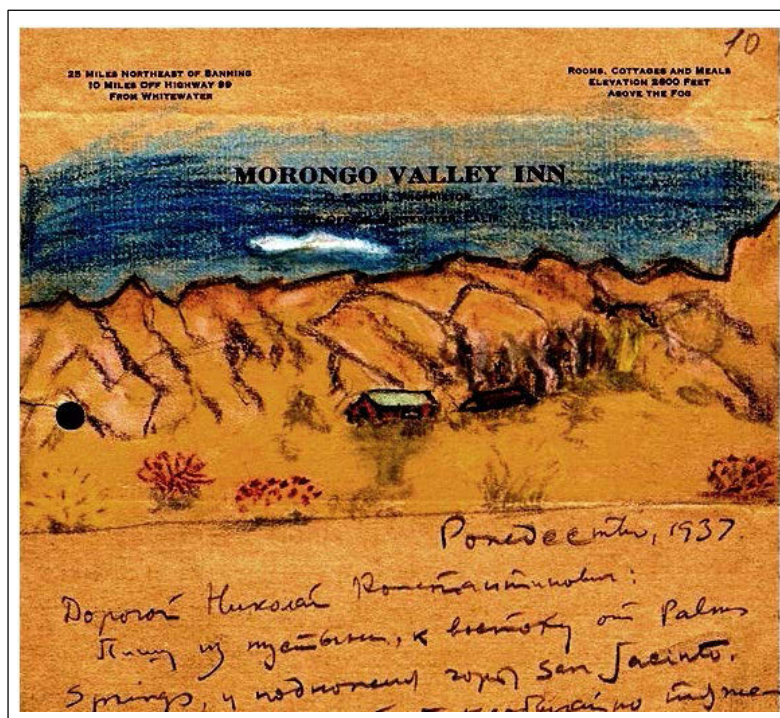 10
25 MILES NORTHEAST OF BANNING
10 MILES OFF HIGHWAY 99
FROM WHITEWATER
ROOMS, COTTAGES AND MEALS
ELEVATION 2600 FEET
ABOVE THE FOG
MORONGO VALLEY INN
PROPRIETOR
Рождество, 1937.
Дорогой Николай Константинович:
Пишу из пустыни, к востоку от Palm
Springs, у подножия горы San Jacinto.
необычайно